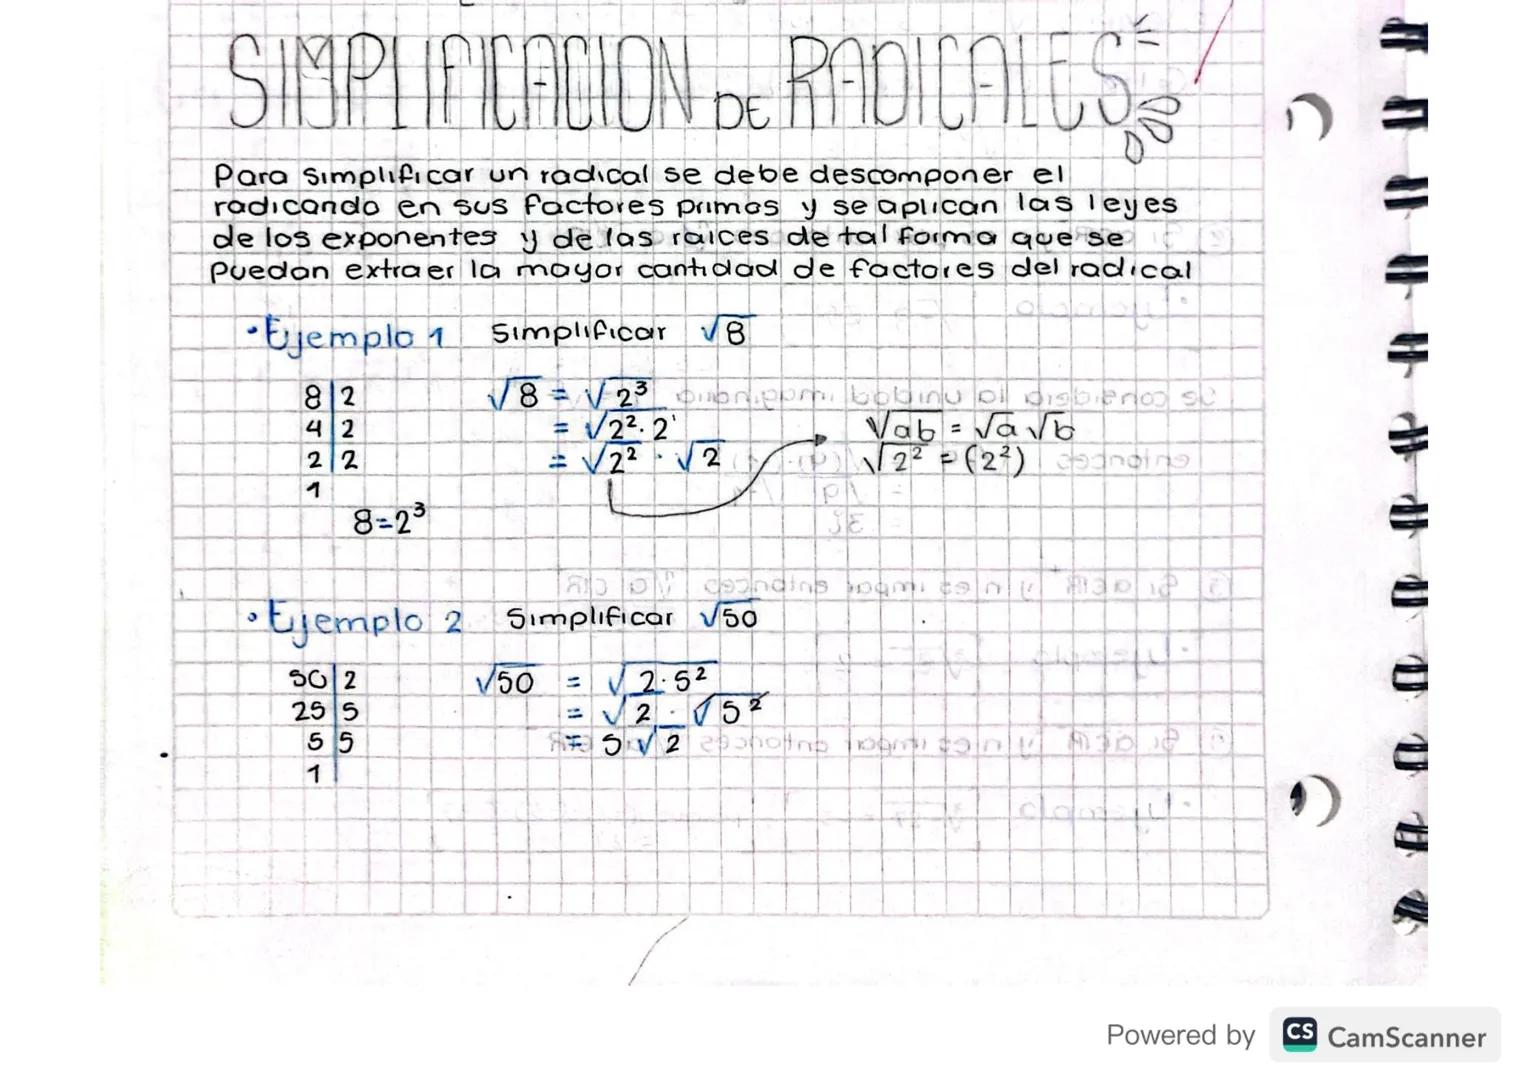 SIMPLIFICACION DE RADICALES
Para simplificar un radical se debe descomponer el
radicando en sus factores primos y se aplican las leyes
de los exponentes y de las raices de tal forma que se
puedan extraer la mayor cantidad de factores del radical
• Ejemplo 1 Simplificar √8
8 | 2 √8 = √2³
4 | 2 = √2² · 2¹ √ab = √a √b
2 | 2 = √2² · √2 √2² = (2²)
1
8=2³
• Ejemplo 2 Simplificar √50
50 | 2 √50 = √2·5²
25 | 5 = √2 · √5²
5 | 5 = 5√2
1
Powered by CS CamScanner